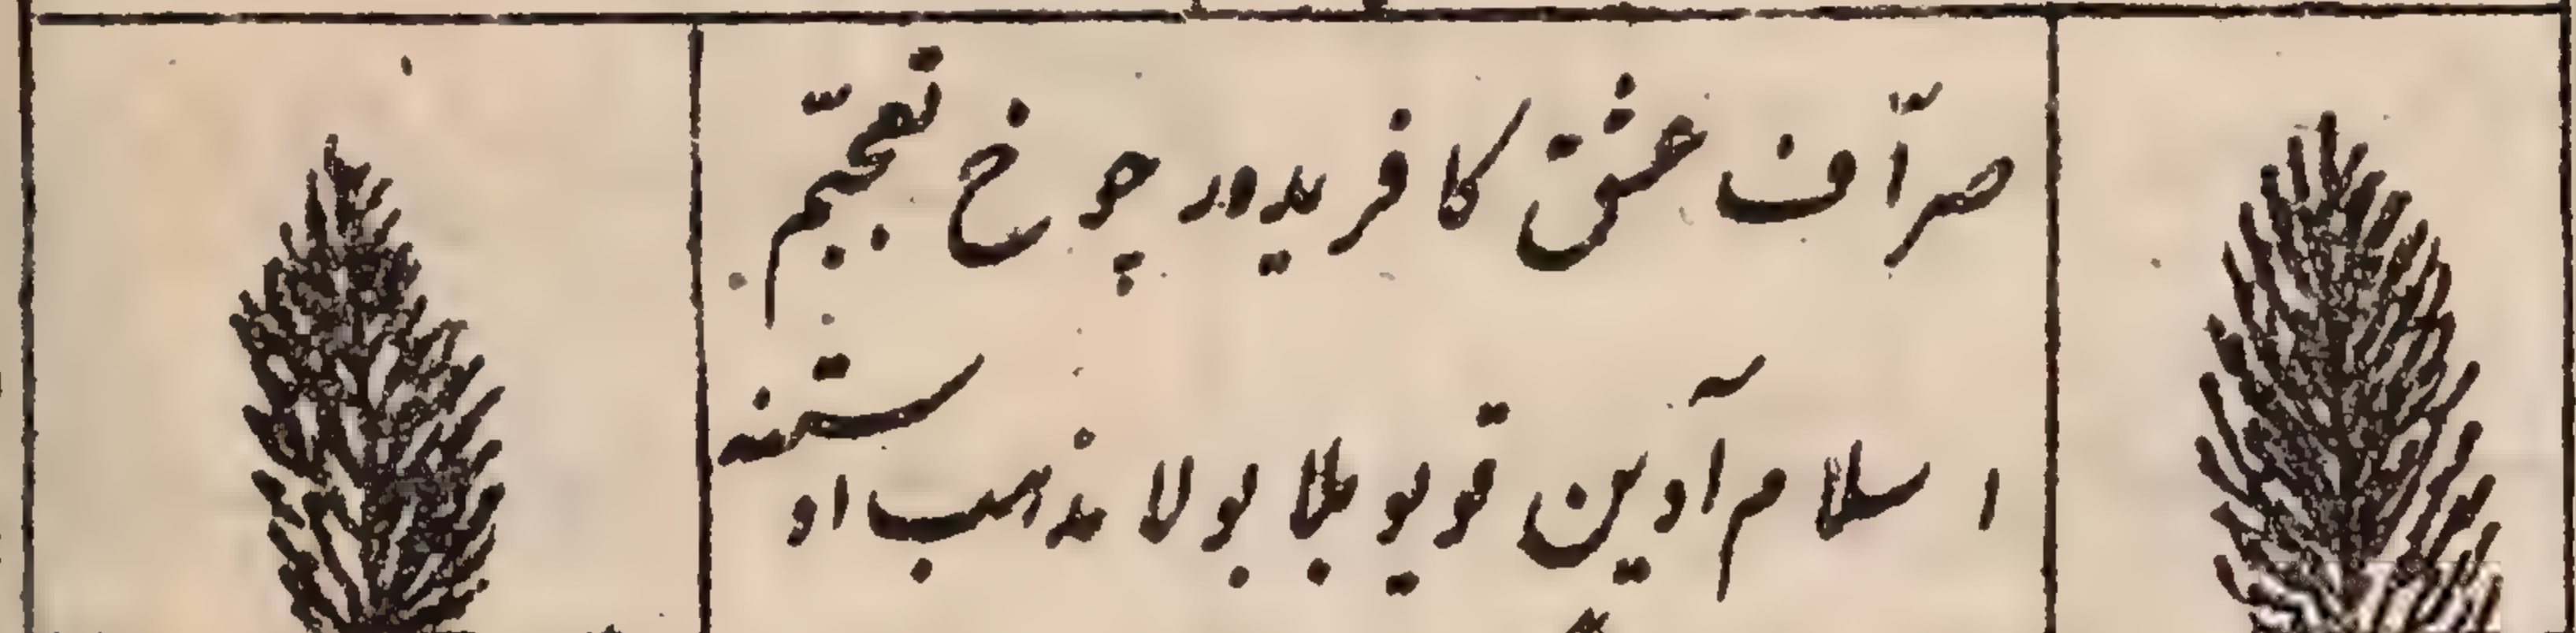 صرّاف عشق کافریدور چوخ تعجبّم
اسلام آدین قویوبلا بو لامذهب اوستنه